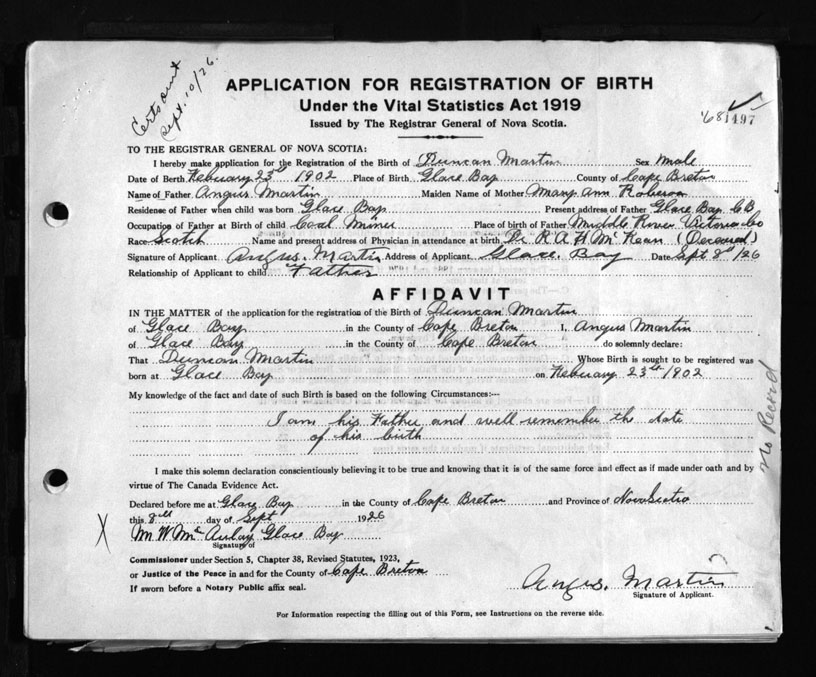 Certs out
Sept. 10/26.
APPLICATION FOR REGISTRATION OF BIRTH
Under the Vital Statistics Act 1919
Issued by The Registrar General of Nova Scotia.
'68 1497
TO THE REGISTRAR GENERAL OF NOVA SCOTIA:
I hereby make application for the Registration of the Birth of Duncan Martin Sex male
Date of Berth February 23rd 1902 Place of Birth Glace Bay County of Cape Breton
Name of Father Angus Martin Maiden Name of Mother Mary Ann
Residense of Father when child was born Glace Bay Present address of Father Glace Bay C B
Occupation of Father at Birth of child Coal Miner Place of birth of Father Middle River Victoria Co
Race Scotch Name and present address of Physician in attendance at birth Dr R A H McKean (Deceased)
Signature of Applicant Angus. Martin Address of Applicant Glace. Bay Date Sept 8th/26
Relationship of Applicant to child Father
AFFIDAVIT
IN THE MATTER of the application for the registration of the Birth of Duncan Martin
of Glace Bay in the County of Cape Breton I, Angus Martin
of Glace Bay in the County of Cape Breton do solemnly declare:
That Duncan Martin Whose Birth is sought to be registered was
born at Glace Bay on February 23rd 1902
My knowledge of the fact and date of such Birth is based on the following Circumstances:—
I am his Father and well remember the date
of his birth
No Record
I make this solemn declaration conscientiously believing it to be true and knowing that it is of the same force and effect as if made under oath and by
virtue of The Canada Evidence Act.
Declared before me at Glace Bay in the County of Cape Breton and Province of Nova Scotia
this 8th day of Sept 1926
X
M W McAulay Glace Bay
Signature of
Commissioner under Section 5, Chapter 38, Revised Statutes, 1923,
or Justice of the Peace in and for the County of Cape Breton
If sworn before a Notary Public affix seal.
Angus. Martin
Signature of Applicant.
For Information respecting the filling out of this Form, see Instructions on the reverse side.